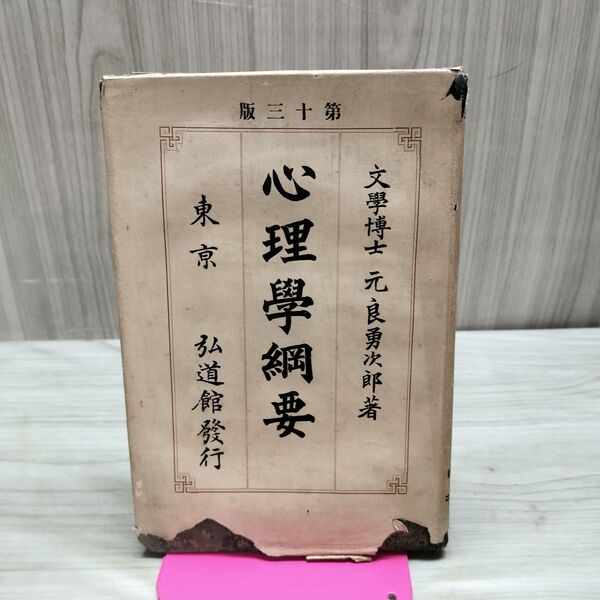 第十三版
文學博士 元良勇次郎著
心理學綱要
東亰 弘道館發行